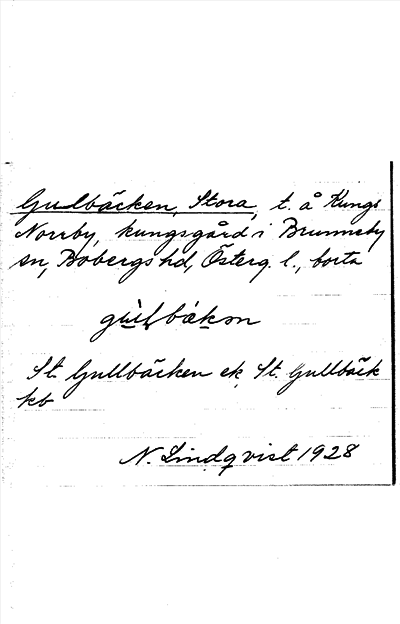 Gullbäcken, Stora, t. å Kungs
Norrby, kungsgård i Brunneby
sn, Bobergs hd, Österg. l., borta
gu̇l̥bäkən
St. Gullbäcken ek, St. Gullbäck
kb
N. Lindqvist 1928